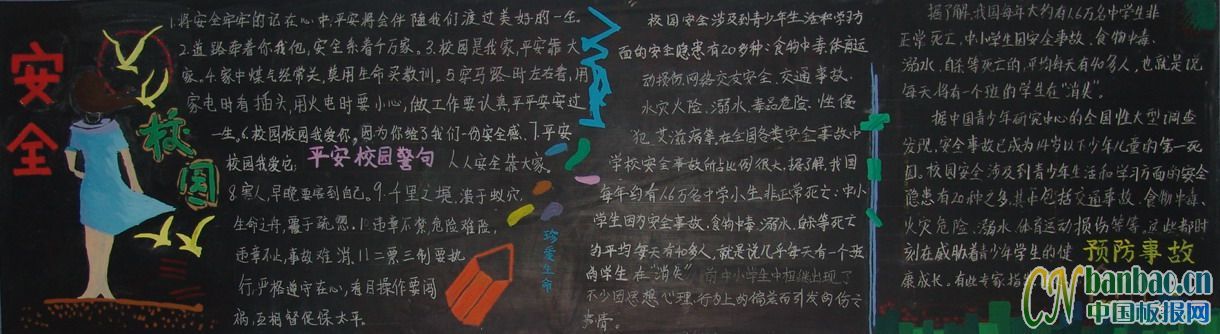 安全
校园
1.将安全牢牢的记在心中,平安将会伴随我们渡过美好的一生.
2.道路牵着你我他,安全系着千万家.3.校园是我家,平安靠大
家.4.家中煤气经常关,莫用生命买教训.5.穿马路时左右看,用
家电时有插头,用火电时要小心,做工作要认真平平安安过
一生.6.校园校园我爱你,因为你给了我们一份安全感.7.平安
校园我爱它,
平安校园警句
人人安全靠大家.
8.害人,早晚要害到自己.9.千里之堤,溃于蚁穴.
生命之舟,覆于疏忽.
违章不止,事故难消.11.二票三制要执
行,严格遵守在心,盲目操作要闯
祸,互相督促保太平.
珍爱生命
校园安全涉及到青少年生活和学习方
面的安全隐患有20多种:食物中毒.体育运
动损伤.网络交友安全.交通事故.
水灾火险.溺水.毒品危险.性侵
犯.艾滋病等.在全国各类安全事故中
学校安全事故所占比例很大.据了解,我国
每年约有1.6万名中学小生.非正常死亡:中小
学生因为安全事故.食物中毒.溺水.自杀等死亡
的平均每天有40多人,就是说几乎每天有一个班
的学生在"消失"
前中小学生中相继出现了
不少因思想心理.行为上的偏差而引发的伤亡
事情.
据了解,我国每年大约有1.6万名中学生非
正常死亡,中小学生因安全事故.食物中毒.
溺水.自杀等死亡的,平均每天有40多人,也就是说
每天将有一个班的学生在"消失".
据中国青少年研究中心的全国性大型调查
发现,安全事故已成为14岁以下少年儿童的第一死
因.校园安全涉及到青少年生活和学习方面的安全
隐患有20种之多.其中包括交通事故.食物中毒.
火灾危险.溺水.体育运动损伤等等.这些都时
刻在威胁着青少年学生的健
康成长.有些专家指
预防事故
CN
banbao.cn
中国板报网